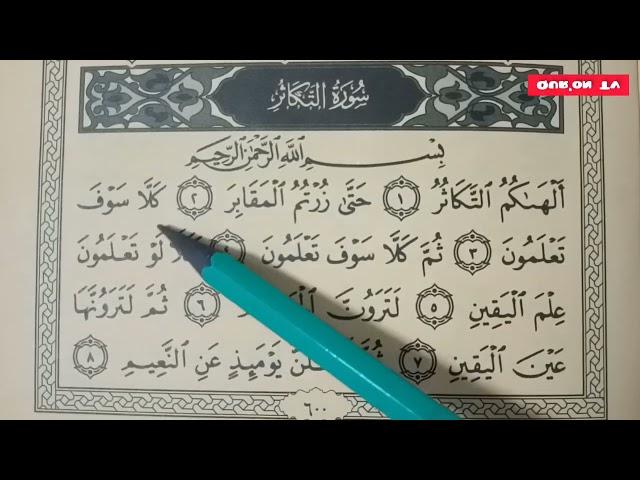 سُورَةُ التَّكَاثُرِ
بِسْمِ ٱللَّهِ ٱلرَّحْمَٰنِ ٱلرَّحِيمِ
أَلْهَىٰكُمُ ٱلتَّكَاثُرُ ١ حَتَّىٰ زُرْتُمُ ٱلْمَقَابِرَ ٢ كَلَّا سَوْفَ
تَعْلَمُونَ ٣ ثُمَّ كَلَّا سَوْفَ تَعْلَمُونَ ٤ لَوْ تَعْلَمُونَ
عِلْمَ ٱلْيَقِينِ ٥ لَتَرَوُنَّ ٦ ثُمَّ لَتَرَوُنَّهَا
عَيْنَ ٱلْيَقِينِ ٧ يَوْمَئِذٍ عَنِ ٱلنَّعِيمِ ٨
٦٠٠